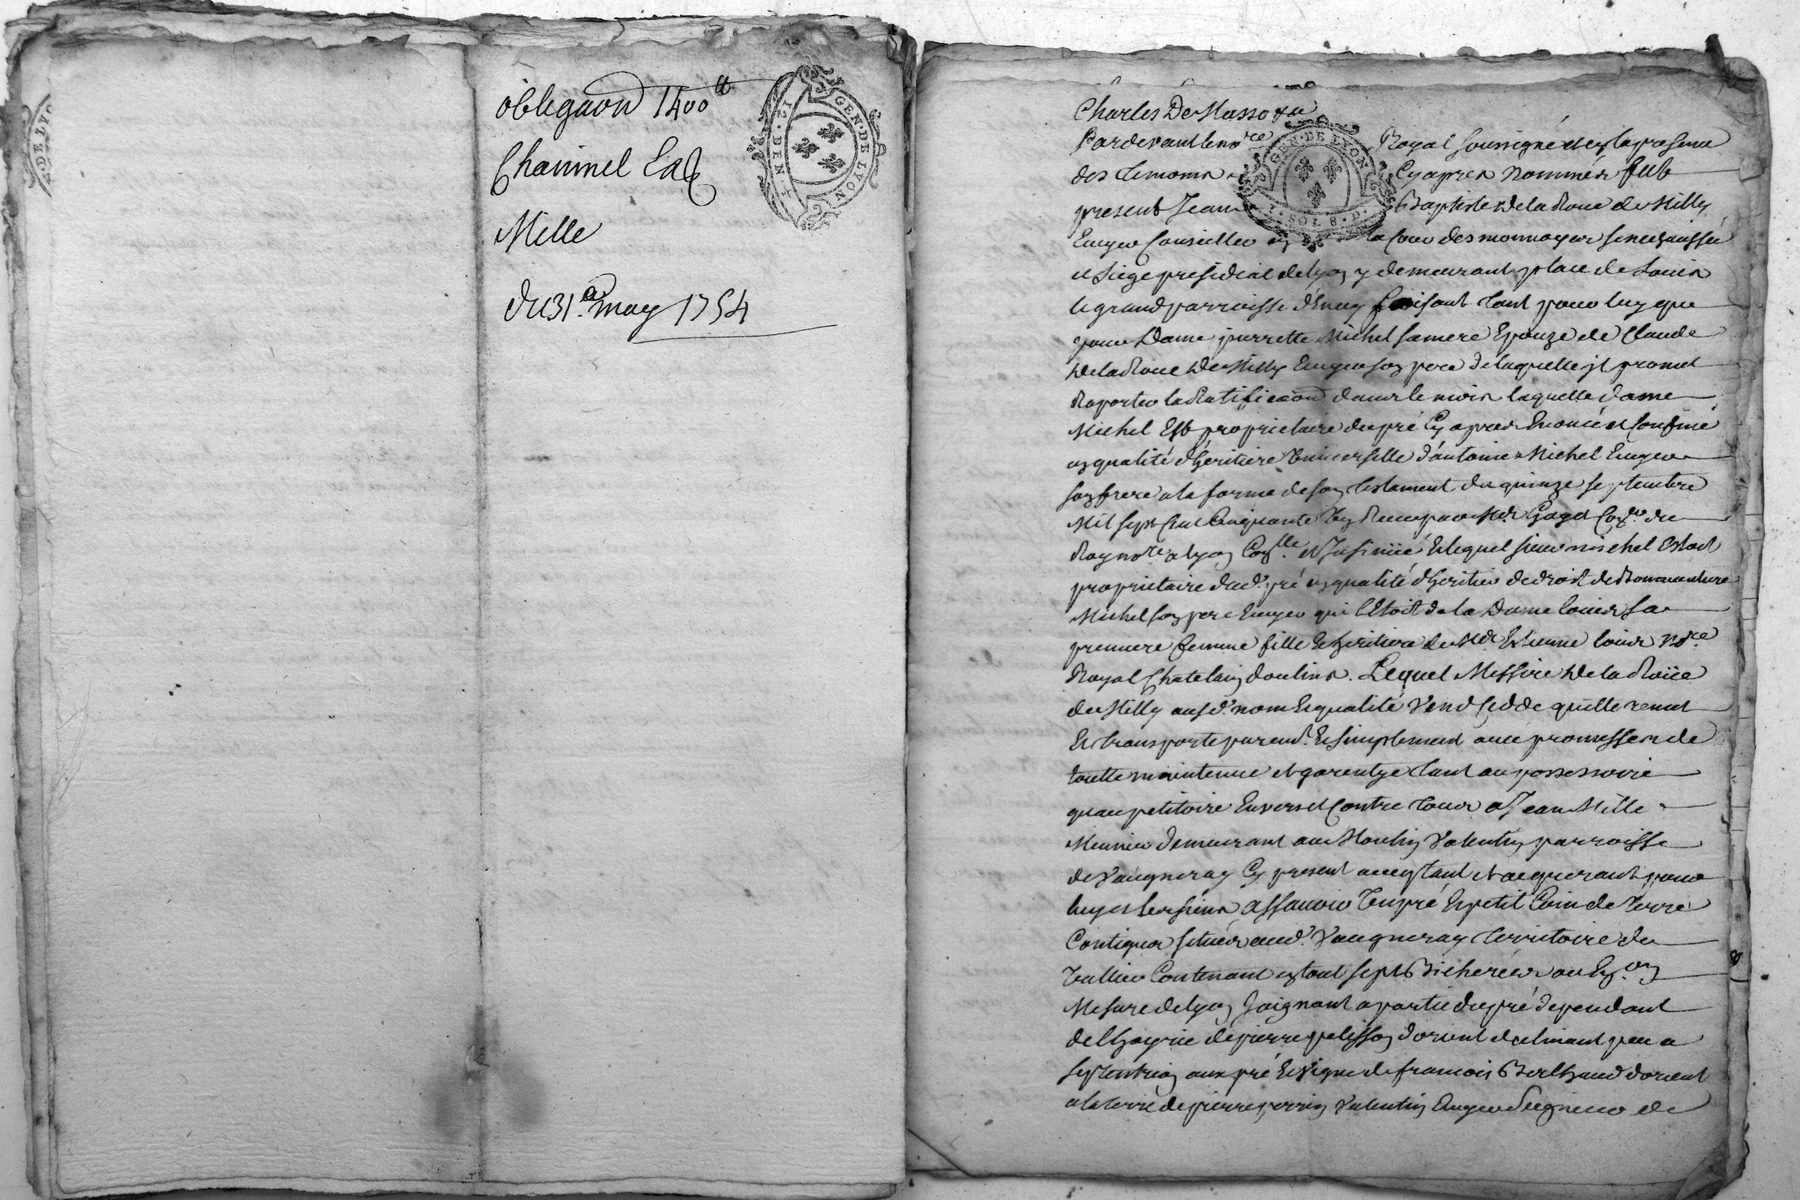 obligaon 1400tt
Charinel
Mille
du 31e may 1754
GEN · DE LYON
12 · DEN
DE LYON
Charles De Masso &a
Pardevant le nore Royal soussigné et en la presence
des temoins Cy apres nommés fut
present Jean Baptiste De la Roue de Milly
Ecuyer Conseiller en la Cour des monnoyes senechaussée
et Siege presidial de Lyon y demeurant place de Louis
le grand parroisse d'Enay faisant tant pour luy que
pour Dame pierrette Michel sa mere Epouze de Claude
De la Roue De Milly Ecuyer son pere de laquelle il promet
Raporter la Ratificaon dans le mois laquelle dame
Michel Est proprietaire du pré Cy apres Enoncé et Confiné
en qualité d'heritiere Universelle d'antoine Michel Ecuyer
son frere a la forme de son testament du quinze septembre
Mil sept Cent Cinquante Un Recu par Me Gayet Coner du
Roy nore a Lyon Conlle et Insinüé Et lequel sieur michel Etoit
proprietaire dud. pré en qualité d'heritier de droit de Bonnaventure
Michel son pere Ecuyer qui l'Etoit de la Dame Louis sa
premiere femme fille et heritiere de Me Etienne Louis nore
Royal Chatelain doulins. Lequel Messire De la Roüe
de Milly ausd. nom Et qualité Vend Cedde quitte remet
Et transporte purement Et simplement avec promesses de
toutte maintenue et garentye tant au possessoire
qu'au petitoire Envers et Contre tous a Jean Mille
Meunier demeurant au Moulin Valentin parroisse
de Vaugneray Cy present acceptant et acquerant pour
luy et les siens assavoir Un pré Et petit Coin de Terre
Contigus situés aud. Vaugneray territoire du
Vallier Contenant en tout sept Bicherées ou En.on
Mesure de Lyon Joignant a partie du pré dependant
de l'hoyrie de pierre pelisson d'orient declinant peu a
septentrion aux pré Et Vigne de francois Berthaud d'orient
a la terre de pierre perrin Valentin Ecuyer Seigneur de
GEN · DE LYON
1 · SOL 8 · D